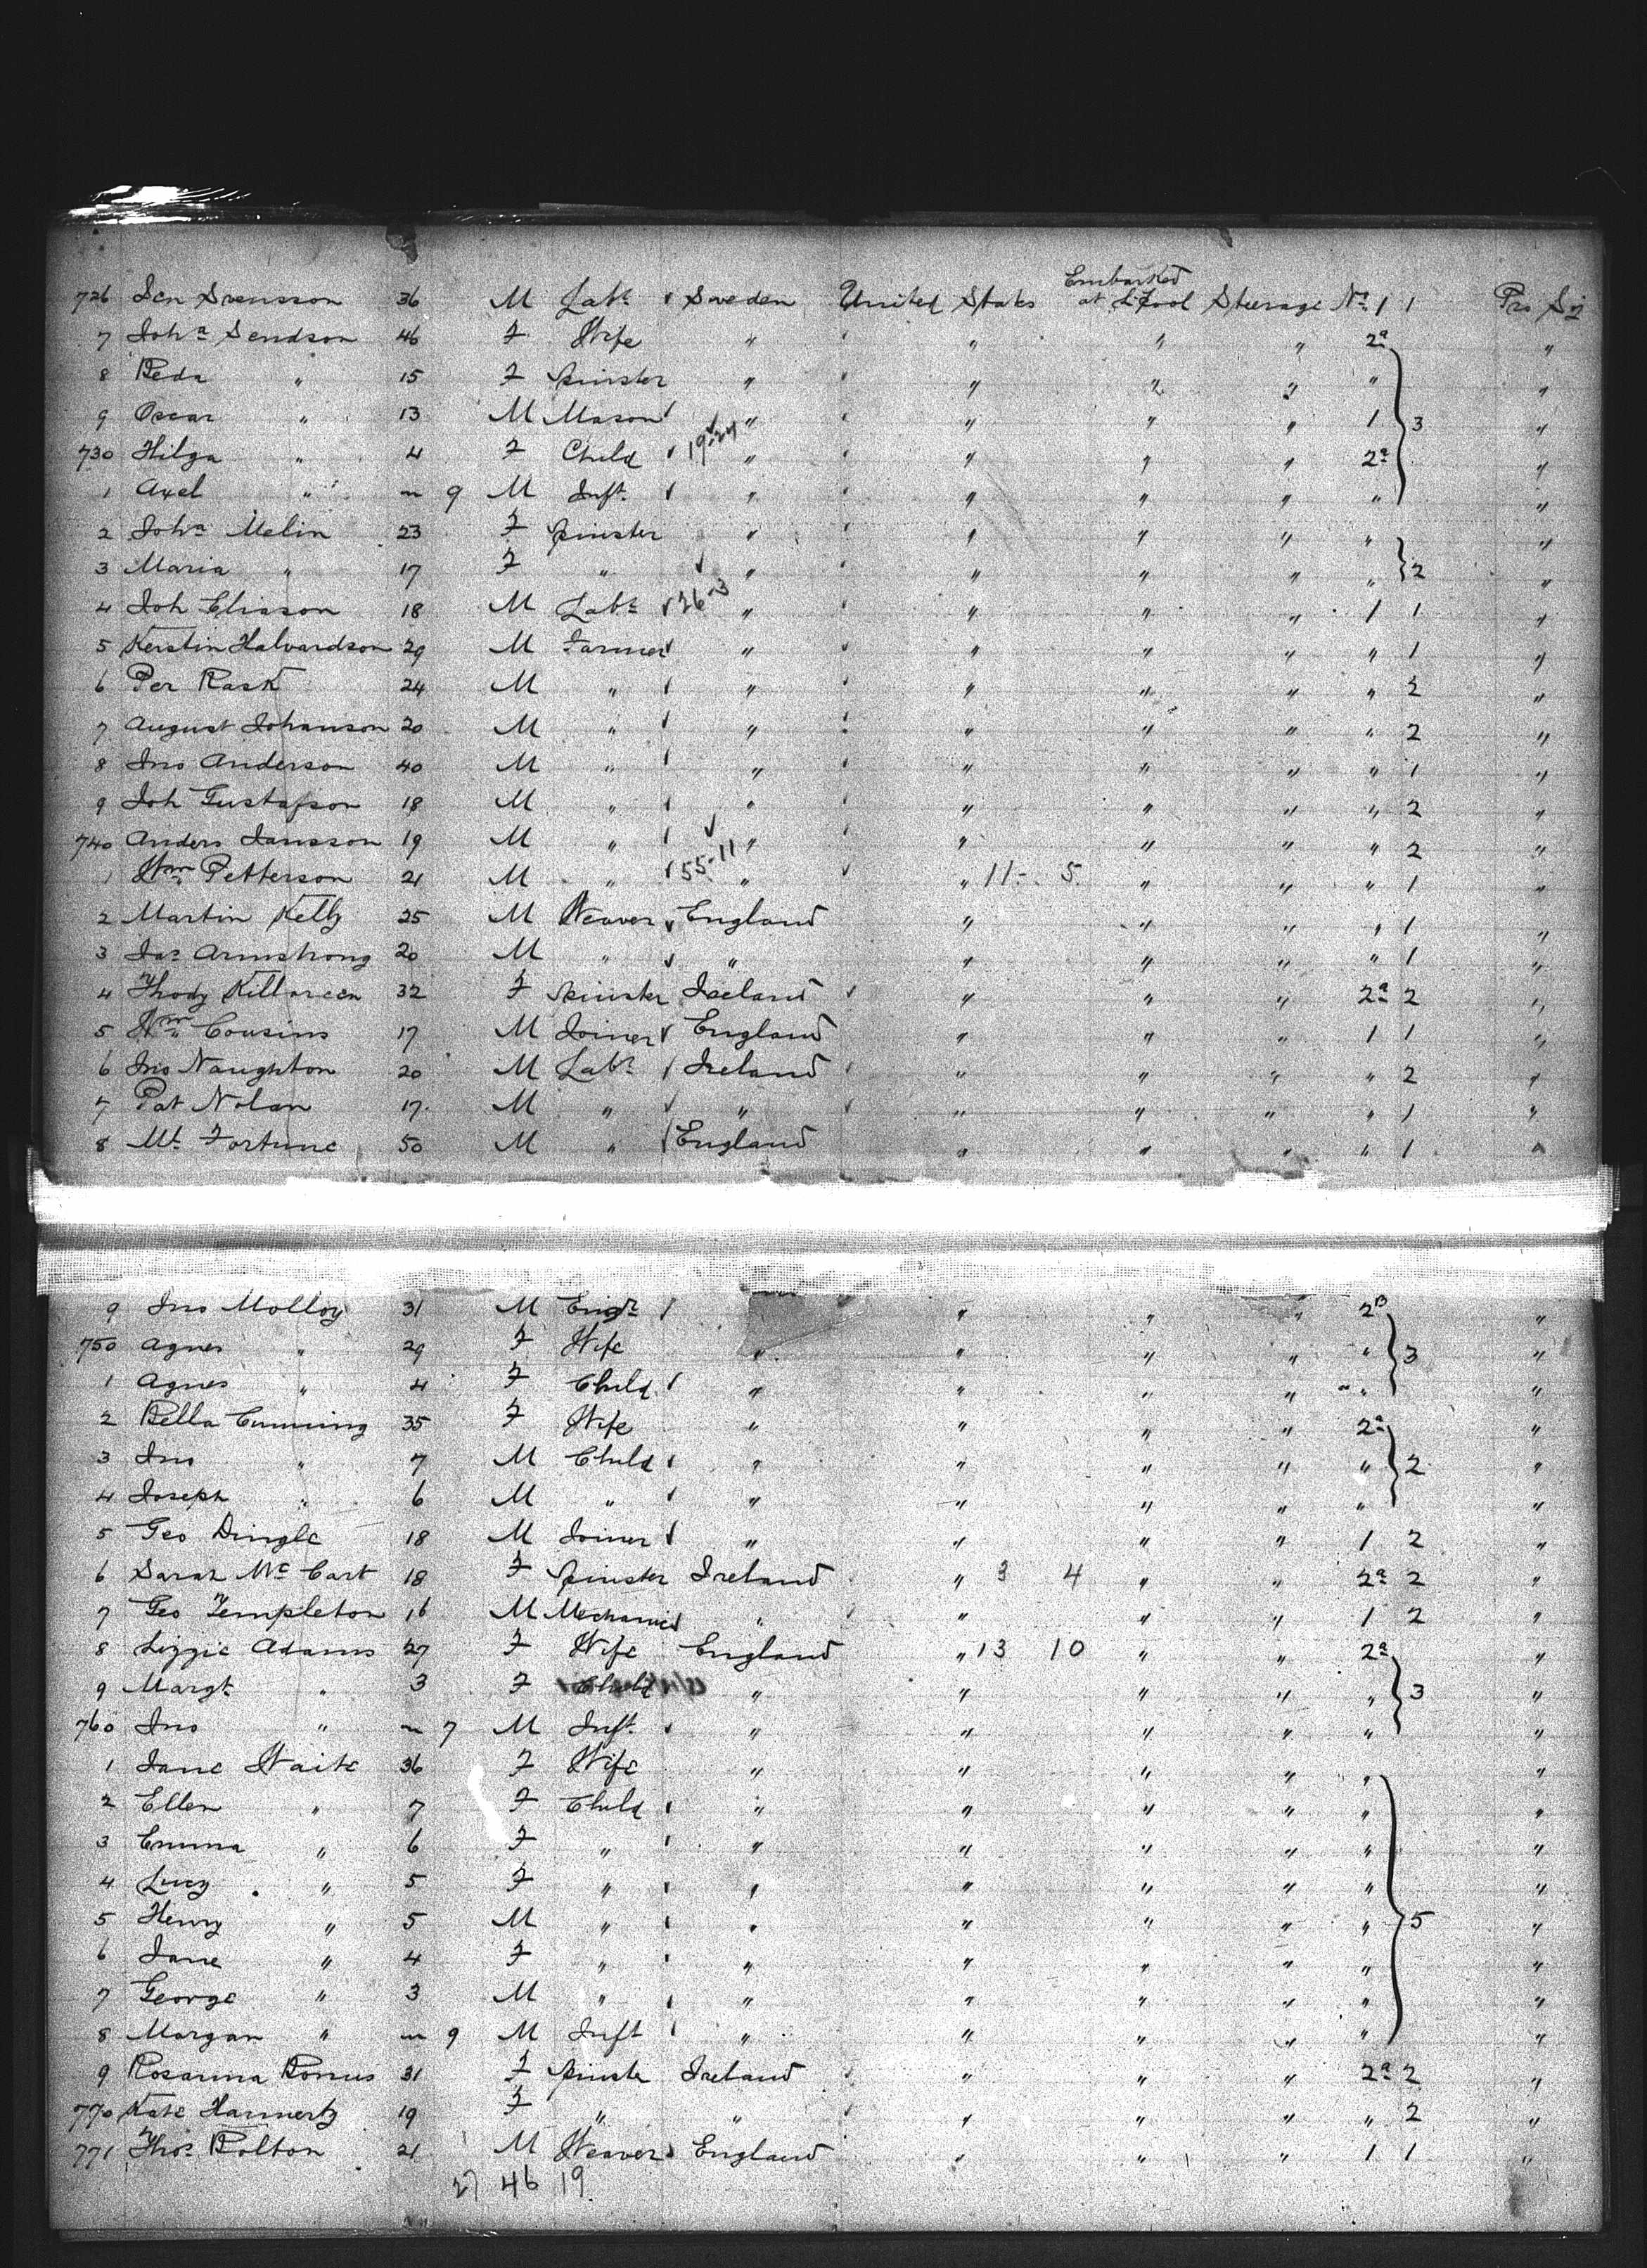 Embarked
726 Sven Svensson 36 M Labr Sweden United States at L'pool Steerage No 1 1 Pro Sj
7 Joha Sendson 46 F Wife " " " " 2a "
8 Beda " 15 F Spinster " " " " " "
9 Oscar " 13 M Mason " " " " 1 3 "
730 Hilga " 4 F Child 19-24 " " " " 2a "
1 Axel " m 9 M Inft " " " " " "
2 Joha Melin 23 F Spinster " " " " " "
3 Maria " 17 F " " " " " " 2 "
4 Joh Eliason 18 M Labr 26-3 " " " " 1 1 "
5 Kerstin Halvardson 29 M Farmer " " " " " 1 "
6 Per Rask 24 M " " " " " " 2 "
7 August Johanson 20 M " " " " " " 2 "
8 Jno Anderson 40 M " " " " " " 1 "
9 Joh Gustafson 18 M " " " " " " 2 "
740 Anders Jansson 19 M " " " " " " 2 "
1 Wm Petterson 21 M " 55-11 " " 11- 5 " " " 1 "
2 Martin Kelly 25 M Weaver England " " " " 1 "
3 Jas Armstrong 20 M " " " " " " 1 "
4 Thody Killoreen 32 F Spinster Ireland " " " 2a 2 "
5 Wm Cousins 17 M Joiner England " " " 1 1 "
6 Jno Naughton 20 M Labr Ireland " " " " 2 "
7 Pat Nolan 17 M " " " " " " 1 "
8 Mt Fortune 50 M " England " " " " 1 "
9 Jno Molloy 31 M Engr " " " 2B "
750 Agnes " 29 F Wife " " " " " 3 "
1 Agnes " 4 F Child " " " " " "
2 Bella Cumming 35 F Wife " " " " 2a "
3 Jno " 7 M Child " " " " " 2 "
4 Joseph " 6 M " " " " " " "
5 Geo Dingle 18 M Joiner " " " " 1 2 "
6 Sarah McCart 18 F Spinster Ireland " 3 4 " " 2a 2 "
7 Geo Templeton 16 M Mechanic " " " " 1 2 "
8 Lizzie Adams 27 F Wife England " 13 10 " " 2a "
9 Margt " 3 F Child " " " " " 3 "
760 Jno " m 7 M Inft " " " " " "
1 Jane Waite 36 F Wife " " " " " "
2 Ellen " 7 F Child " " " " " "
3 Emma " 6 F " " " " " " "
4 Lucy " 5 F " " " " " " "
5 Henry " 5 M " " " " " " 5 "
6 Jane " 4 F " " " " " " "
7 George " 3 M " " " " " " "
8 Morgan " m 9 M Inft " " " " " "
9 Rosanna 31 F Spinster Ireland " " " 2a 2 "
770 Kate 19 F " " " " " " 2 "
771 Thos Bolton 21 M Weaver England " " " 1 1 "
27 46 19